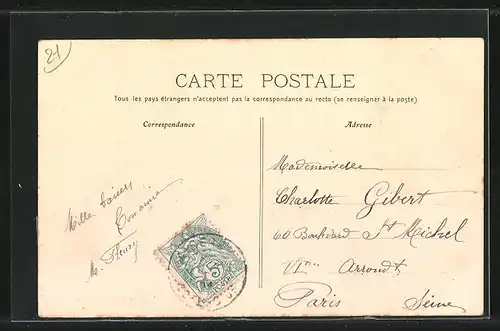 21
CARTE POSTALE
Tous les pays étrangers n'acceptent pas la correspondance au recto (se renseigner à la poste)
Correspondance
Adresse
Mille baisers
Bonanno
M. Fleury
5
Mademoiselle
Charlotte Gibert
60 Boulevard St Michel
VIme Arrondt
Paris Seine